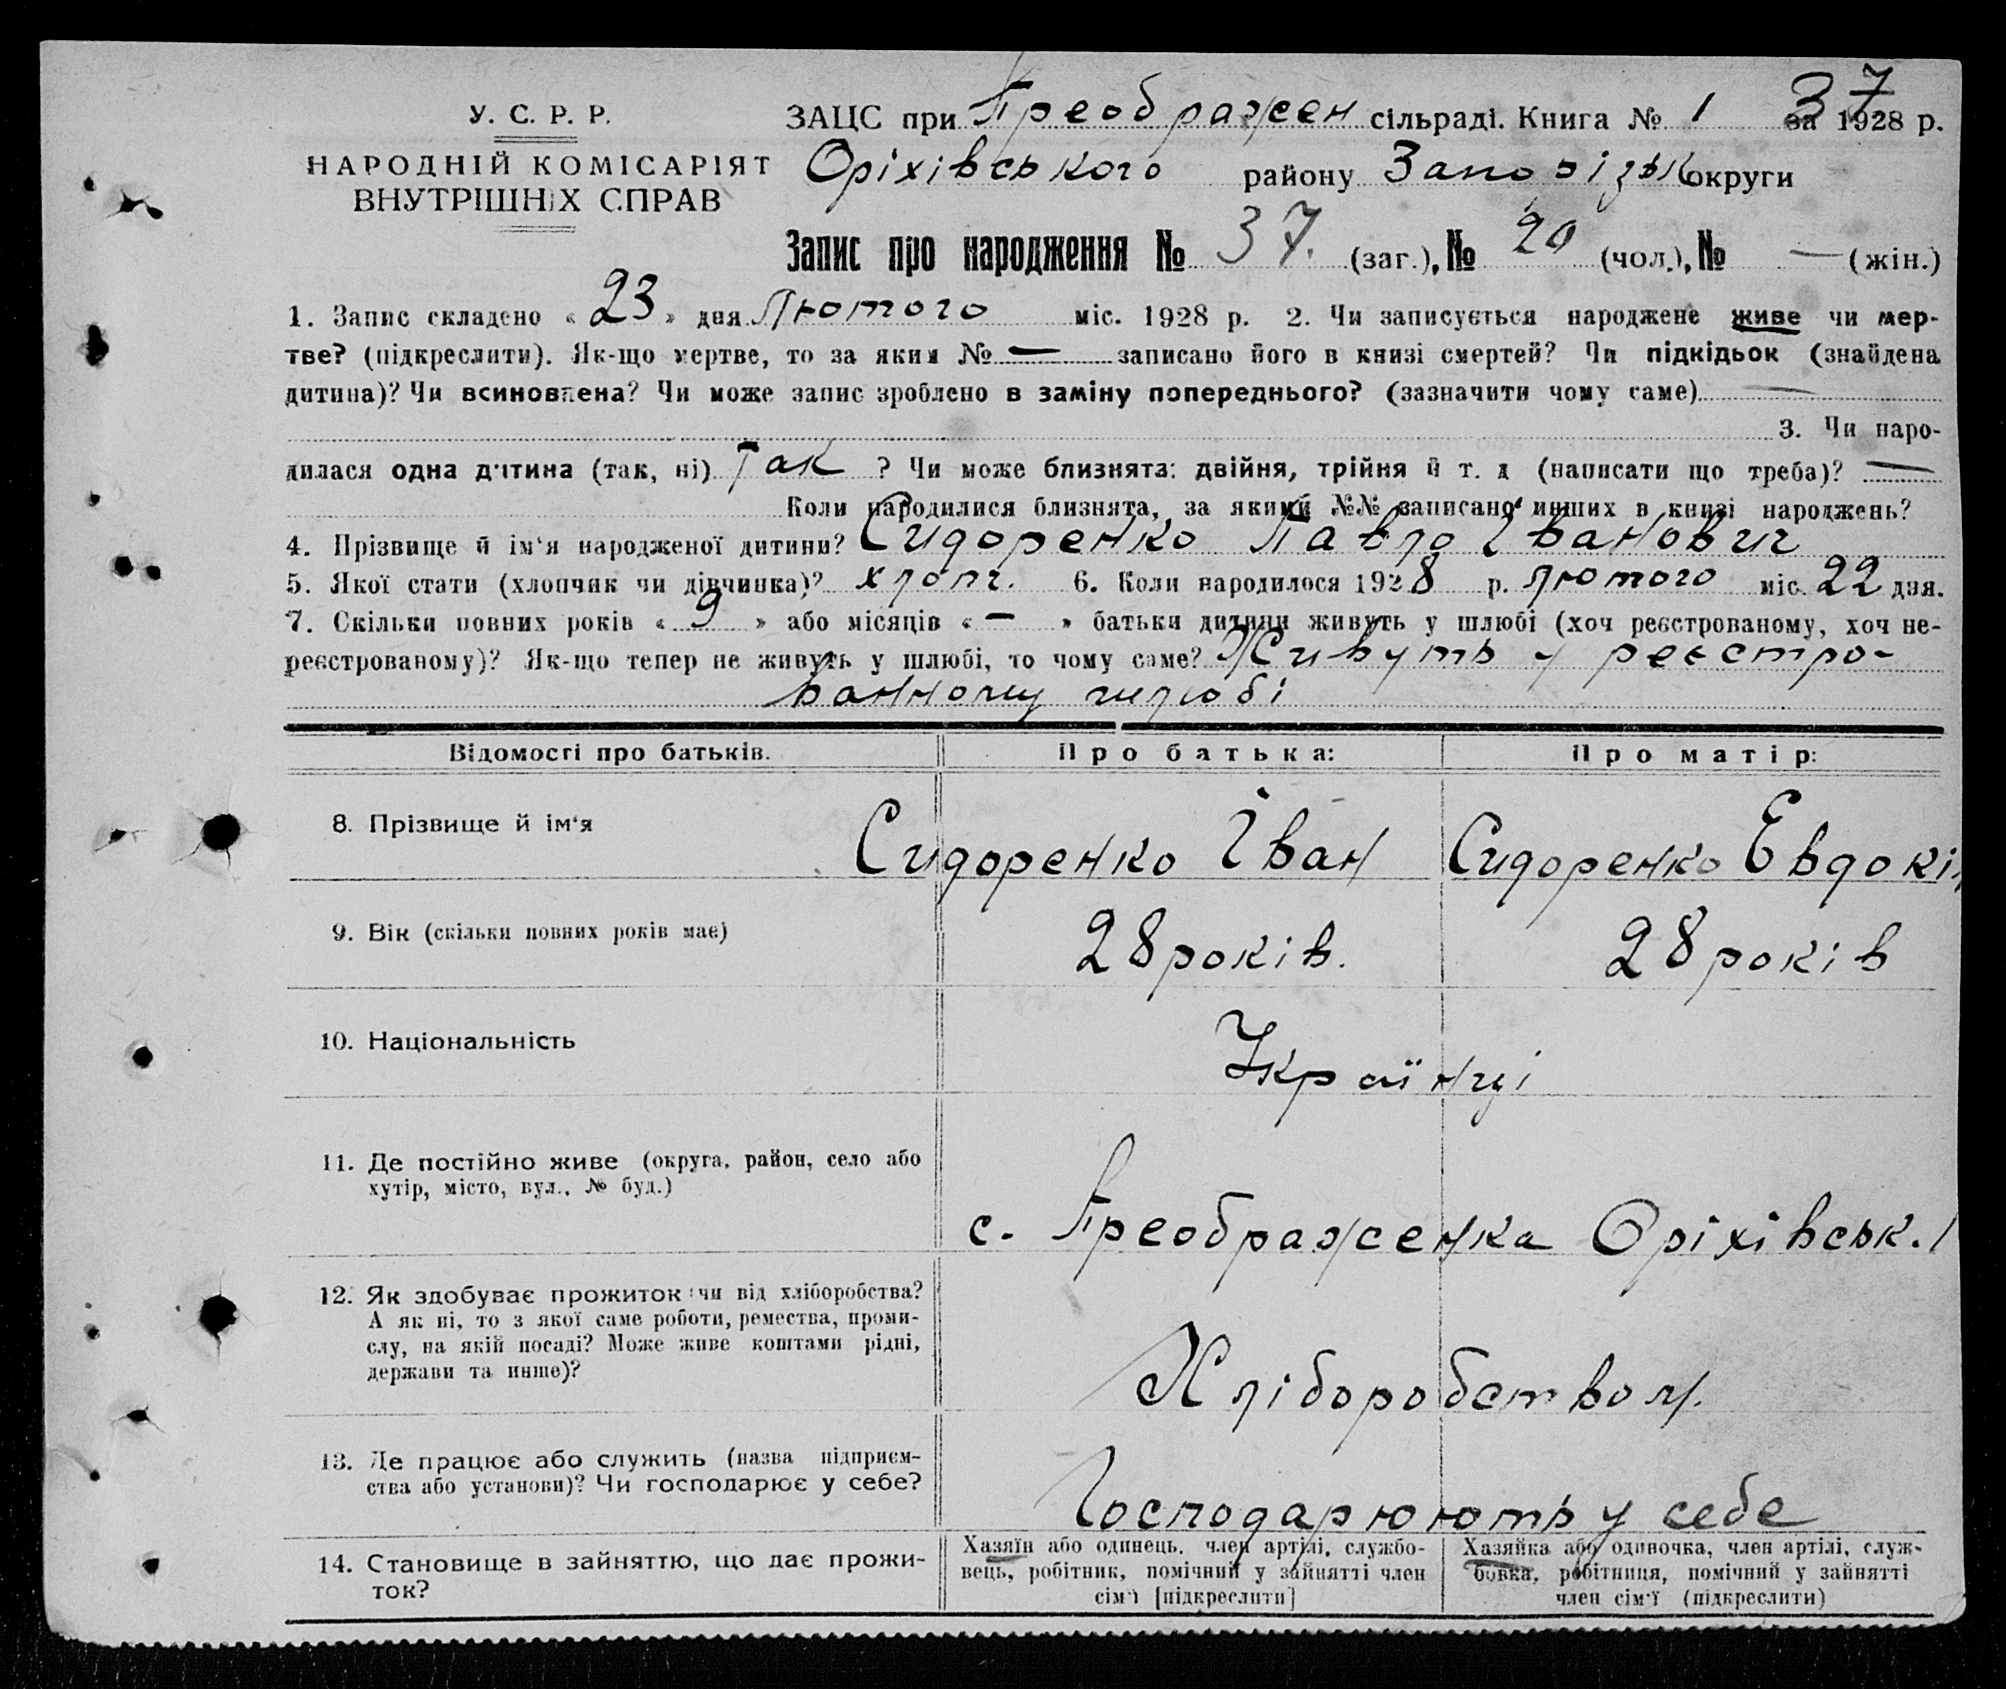 У. С. Р. Р.
НАРОДНІЙ КОМІСАРІЯТ
ВНУТРІШНІХ СПРАВ
37
ЗАЦС при Преображен сільраді. Книга № 1 за 1928 р.
Оріхівського району Запорізьк округи
Запис про народження № 37. (заг.), № 20 (чол.), № — (жін.)
1. Запис складено « 23 » дня Лютого міс. 1928 р. 2. Чи записується народжене живе чи мер-
тве? (підкреслити). Як-що мертве, то за яким № — записано його в книзі смертей? Чи підкідьок (знайдена
дитина)? Чи всиновлена? Чи може запис зроблено в заміну попереднього? (зазначити чому саме) —
3. Чи наро-
дилася одна дитина (так, ні) Так ? Чи може близнята: двійня, трійня й т. д (написати що треба)? —
Коли народилися близнята, за якими №№ записано инших в книзі народжень?
4. Прізвище й ім'я народженої дитини? Сидоренко Павло Іванович
5. Якої стати (хлопчик чи дівчинка)? хлопч. 6. Коли народилося 1928 р. лютого міс. 22 дня.
7. Скільки повних років « 9 » або місяців « — » батьки дитини живуть у шлюбі (хоч реєстрованому, хоч не-
реєстрованому)? Як-що тепер не живуть у шлюбі, то чому саме? Живуть у реєстро-
ванному шлюбі
Відомості про батьків. Про батька: Про матір:
8. Прізвище й ім'я Сидоренко Іван Сидоренко Евдокія
9. Вік (скільки повних років має) 28 років. 28 років
10. Національність Українці
11. Де постійно живе (округа, район, село або
хутір, місто, вул., № буд.)
с. Преображенка Оріхівськ.
12. Як здобуває прожиток: чи від хліборобства?
А як ні, то з якої саме роботи, ремества, проми-
слу, на якій посаді? Може живе коштами рідні,
держави та инше)?
Хліборобством.
13. Де працює або служить (назва підприєм-
ства або установи)? Чи господарює у себе?
Господарюють у себе
14. Становище в зайняттю, що дає прожи-
ток?
Хазяїн або одинець, член артілі, службо-
вець, робітник, помічний у зайнятті член
сім'ї [підкреслити]
Хазяйка або одиночка, член артілі, служ-
бовка, робітниця, помічний у зайнятті
член сім'ї (підкреслити)